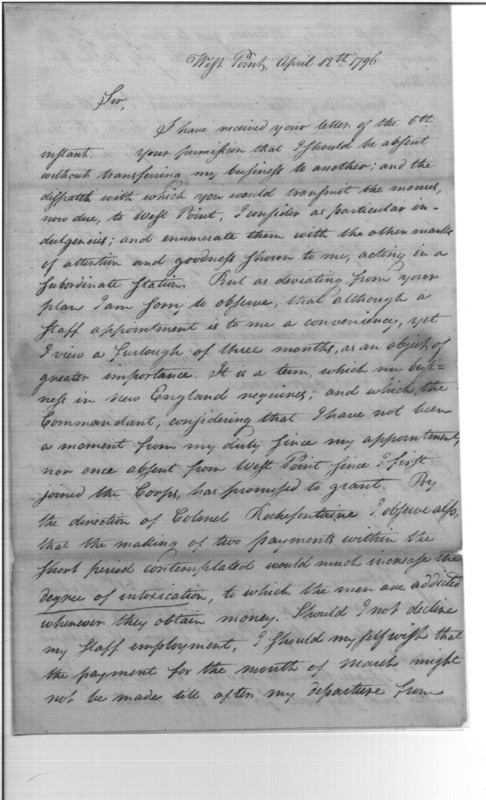 West Point, April 12th 1796
Sir,
I have received your letter of the 6th
instant. Your permission that I should be absent
without transfering my business to another; and the
dispatch with which you would transmit the monies,
now due, to West Point, I consider as particular in-
dulgencies; and enumerate them with the other marks
of attention and goodness shown to me, acting in a
subordinate station. But as deviating from your
plan I am sorry to observe, that although a
staff appointment is to me a conveniency, yet
I view a furlough of three months, as an object of
greater importance. It is a term, which my busi-
ness in New England requires; and which the
Commandant, considering that I have not been
a moment from my duty since my appointment,
nor once absent from West Point since I first
joined the Corps, has promised to grant. By
the direction of Colonel Rochefontaine I observe also,
that the making of two payments within the
short period contemplated would much increase the
degree of intoxication, to which the men are addicted
whenever they obtain money. Should I not decline
my staff employment, I should myself wish that
the payment for the month of March might
not be made till after my departure from